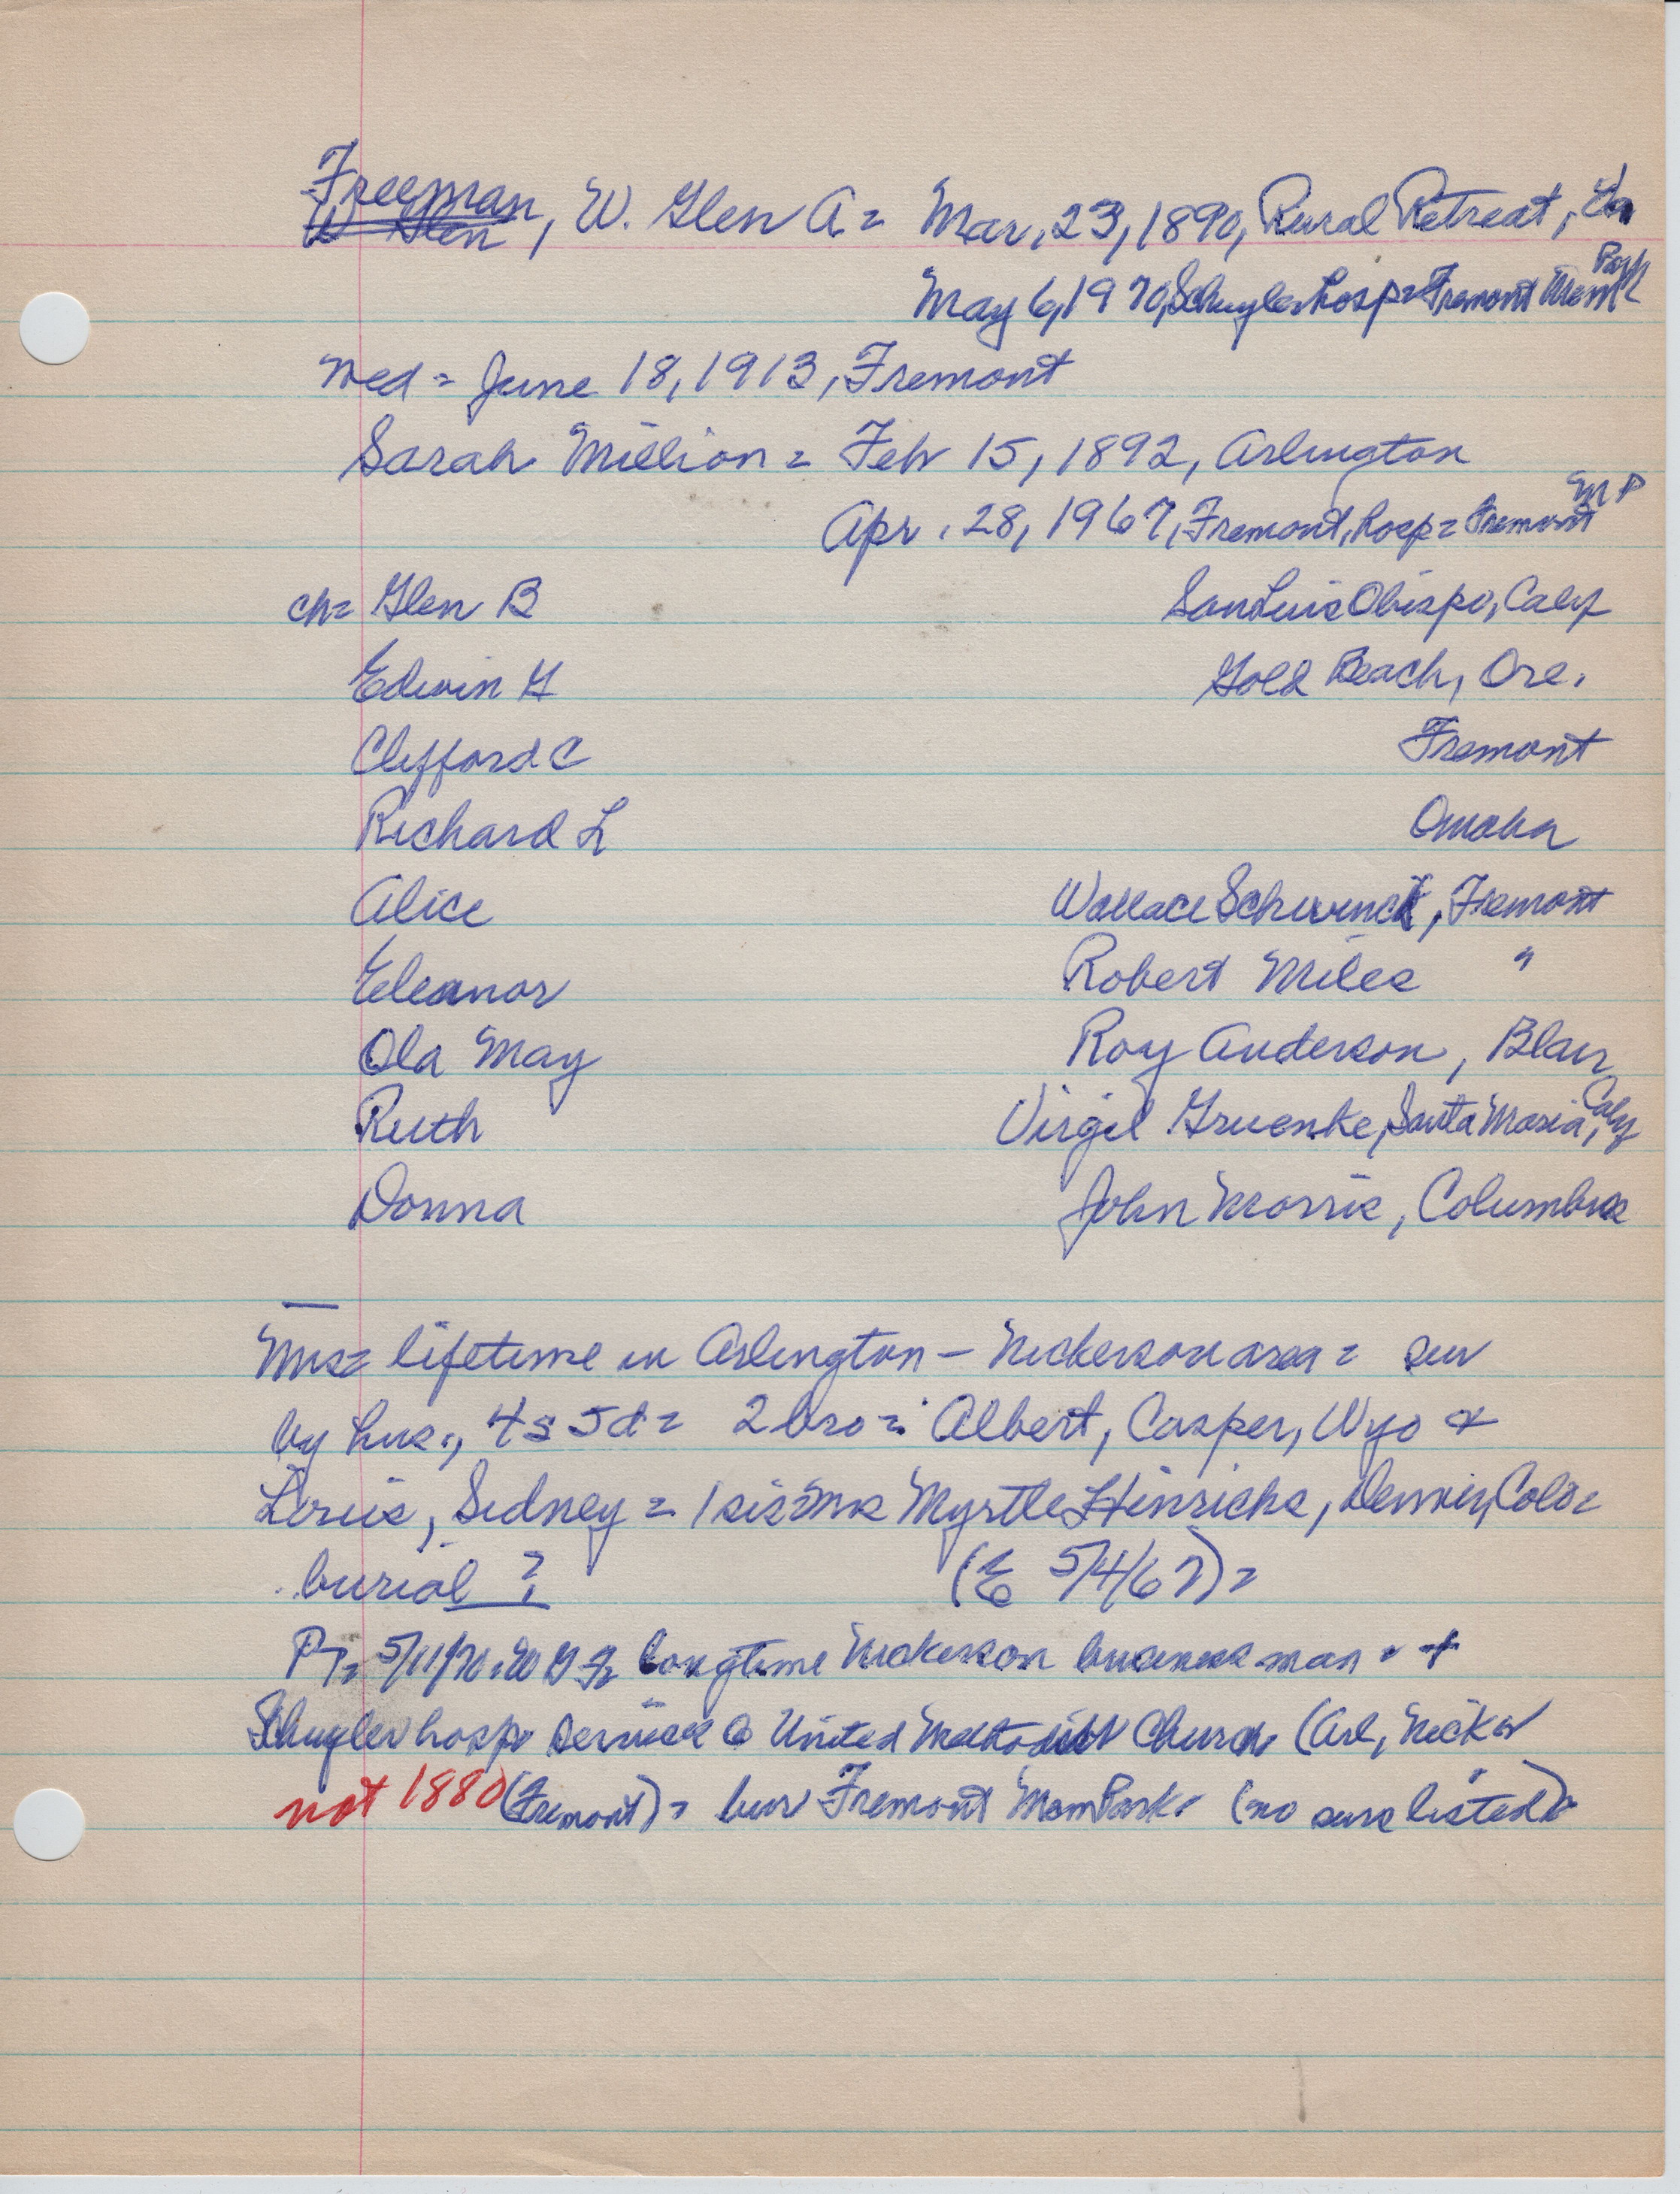 Freeman, W. Glen A = Mar, 23, 1890, Rural Retreat, Va
W Glen
May 6, 1970, Schuyler hosp = Fremont Mem Park
wed = June 18, 1913, Fremont
Sarah Million = Feb 15, 1892, Arlington
Apr. 28, 1967, Fremont, hosp = Fremont M P
ch = Glen B San Luis Obispo, Calif
Edwin G Gold Beach, Ore.
Clifford C Fremont
Richard L Omaha
Alice Wallace Schwinck, Fremont
Eleanor Robert Miles "
Ola May Roy Anderson, Blair
Ruth Virgil Gruenke, Santa Maria, Calif
Donna John Morris, Columbus
Mrs = lifetime in Arlington - Nickerson area = sur
by hus., 4 s 5 d = 2 bro = Albert, Casper, Wyo +
Louis, Sidney = 1 sis = Mrs Myrtle Hinrichs, Denver, Colo =
burial ? (E 5/4/67) =
5/11/70 longtime Nickerson business man = +
Schuyler hosp = services @ United Methodist Church (Arl, Nick or
not 1880 (Fremont) = bur Fremont Mem Park = (no surs listed) =